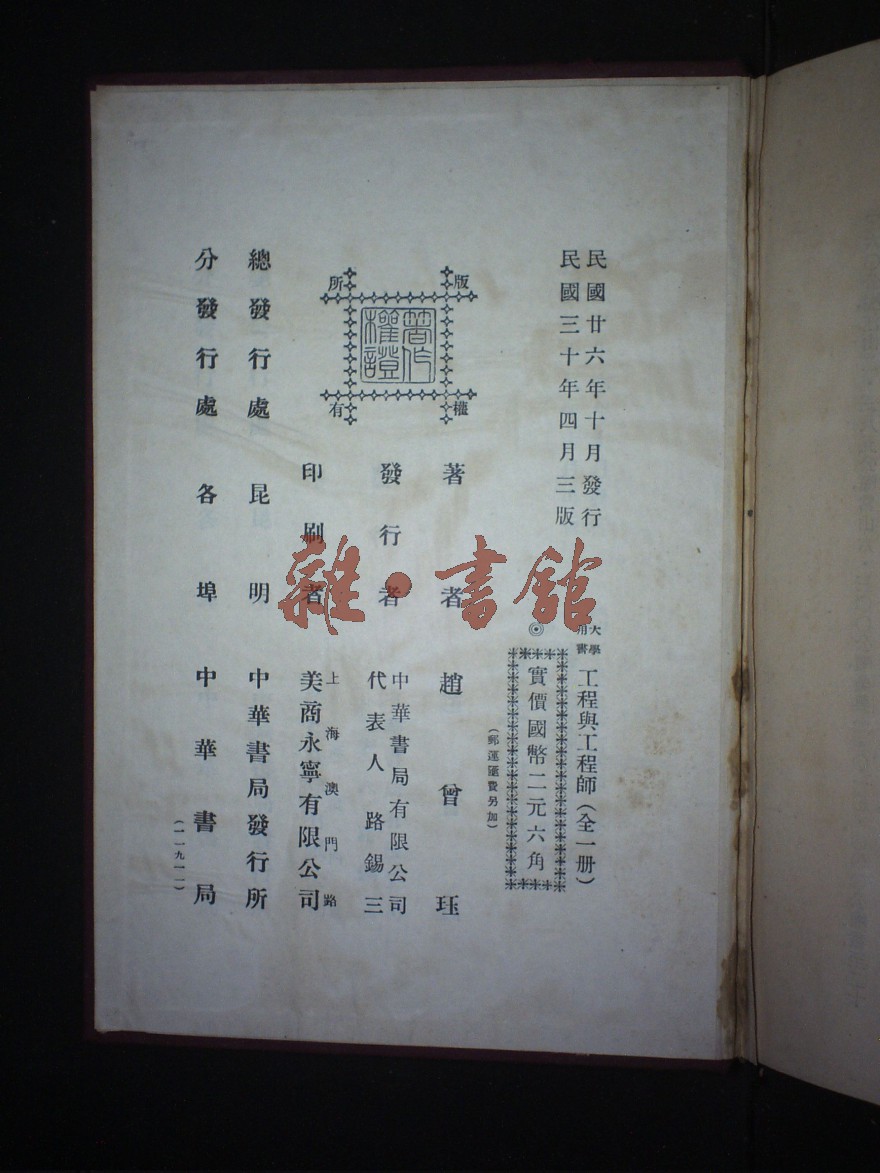 民國廿六年十月發行
民國三十年四月三版
大學用書
工程與工程師（全一册）
◎
實價國幣二元六角
（郵運匯費另加）
版權所有
著作權證
著者 趙曾珏
發行者 中華書局有限公司
代表人 路錫三
印刷者 上海澳門路
美商永寧有限公司
總發行處 昆明 中華書局發行所
分發行處 各埠 中華書局
（一一九一一）
雜·書館